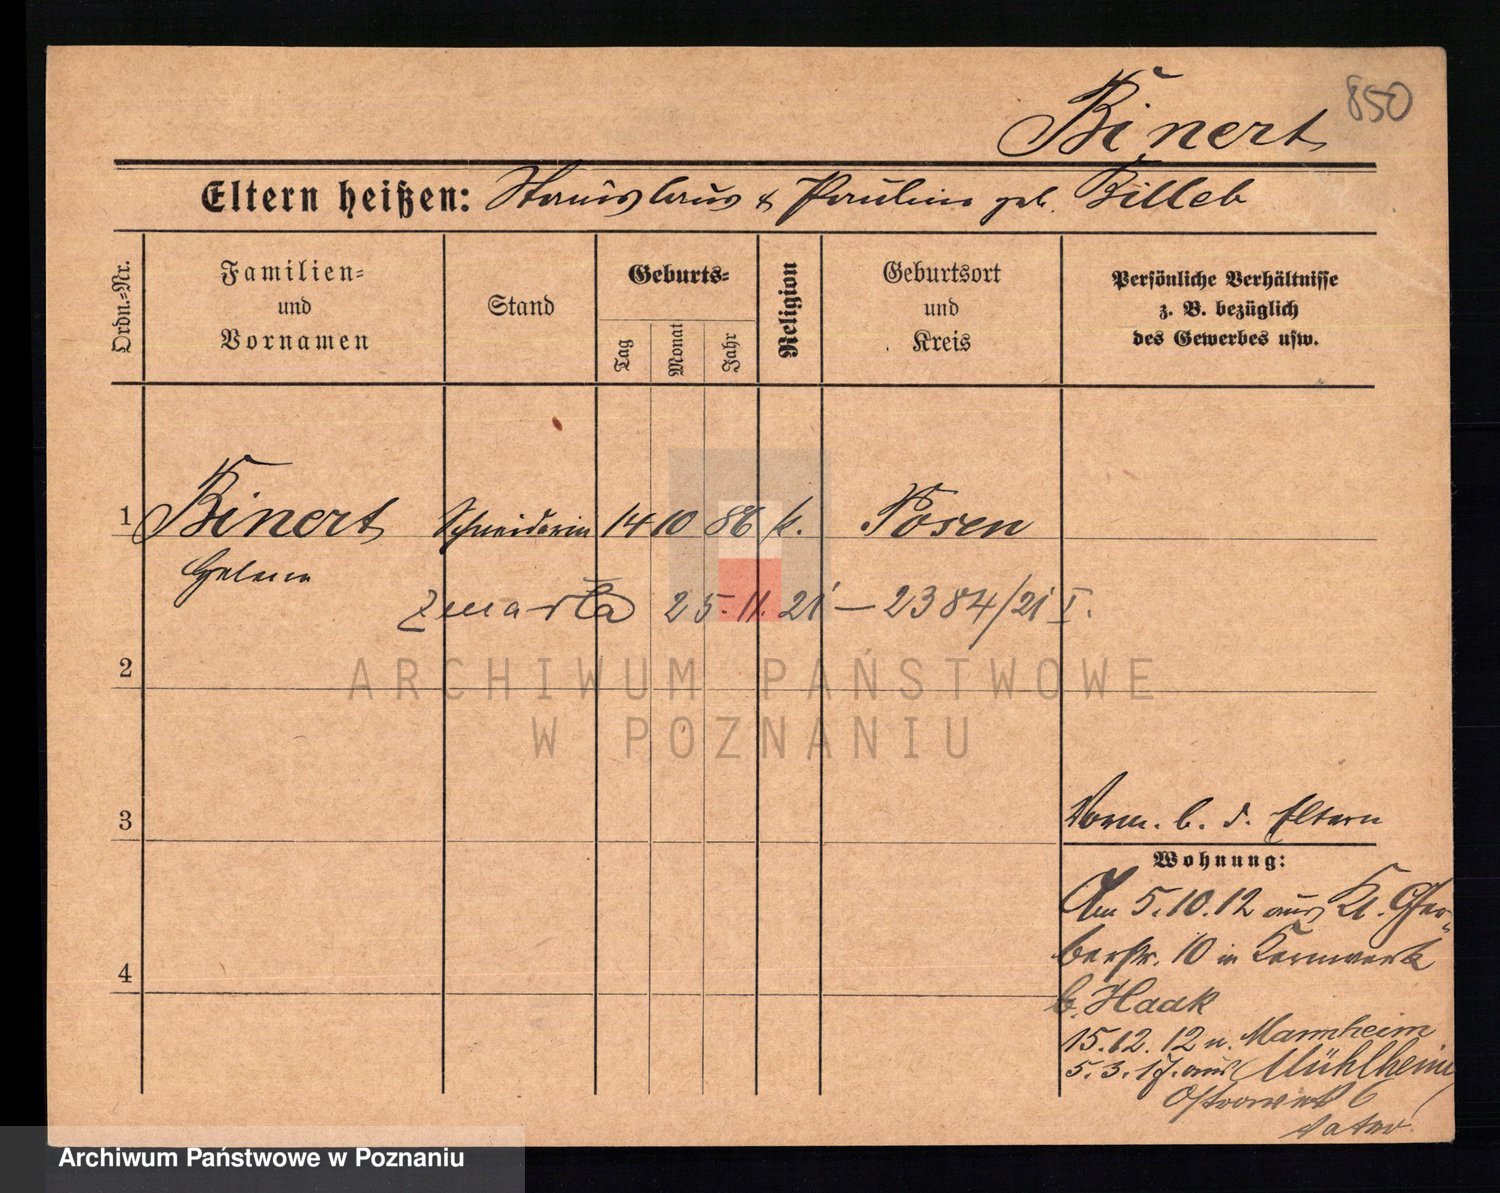 850
Binert
Eltern heißen: Stanislaus & Paulina geb. Billeb
Ordn.-Nr.
Familien-
und
Vornamen
Stand
Geburts-
Tag
Monat
Jahr
Religion
Geburtsort
und
Kreis
Persönliche Verhältnisse
z. B. bezüglich
des Gewerbes usw.
1 Binert Schneiderin 14 10 86 k. Posen
Helena
zmarła 25.11.21 — 2384/21 I.
2
ARCHIWUM PAŃSTWOWE
W POZNANIU
3
Vorm. b. d. Eltern
Wohnung:
Am 5.10.12 aus Kl. Ger-
berstr. 10 in Kernwerk
4
b. Haak
15.12.12 n. Mannheim
5.3.17. aus Mühlheim
Ostrowek 6
Vater
Archiwum Państwowe w Poznaniu